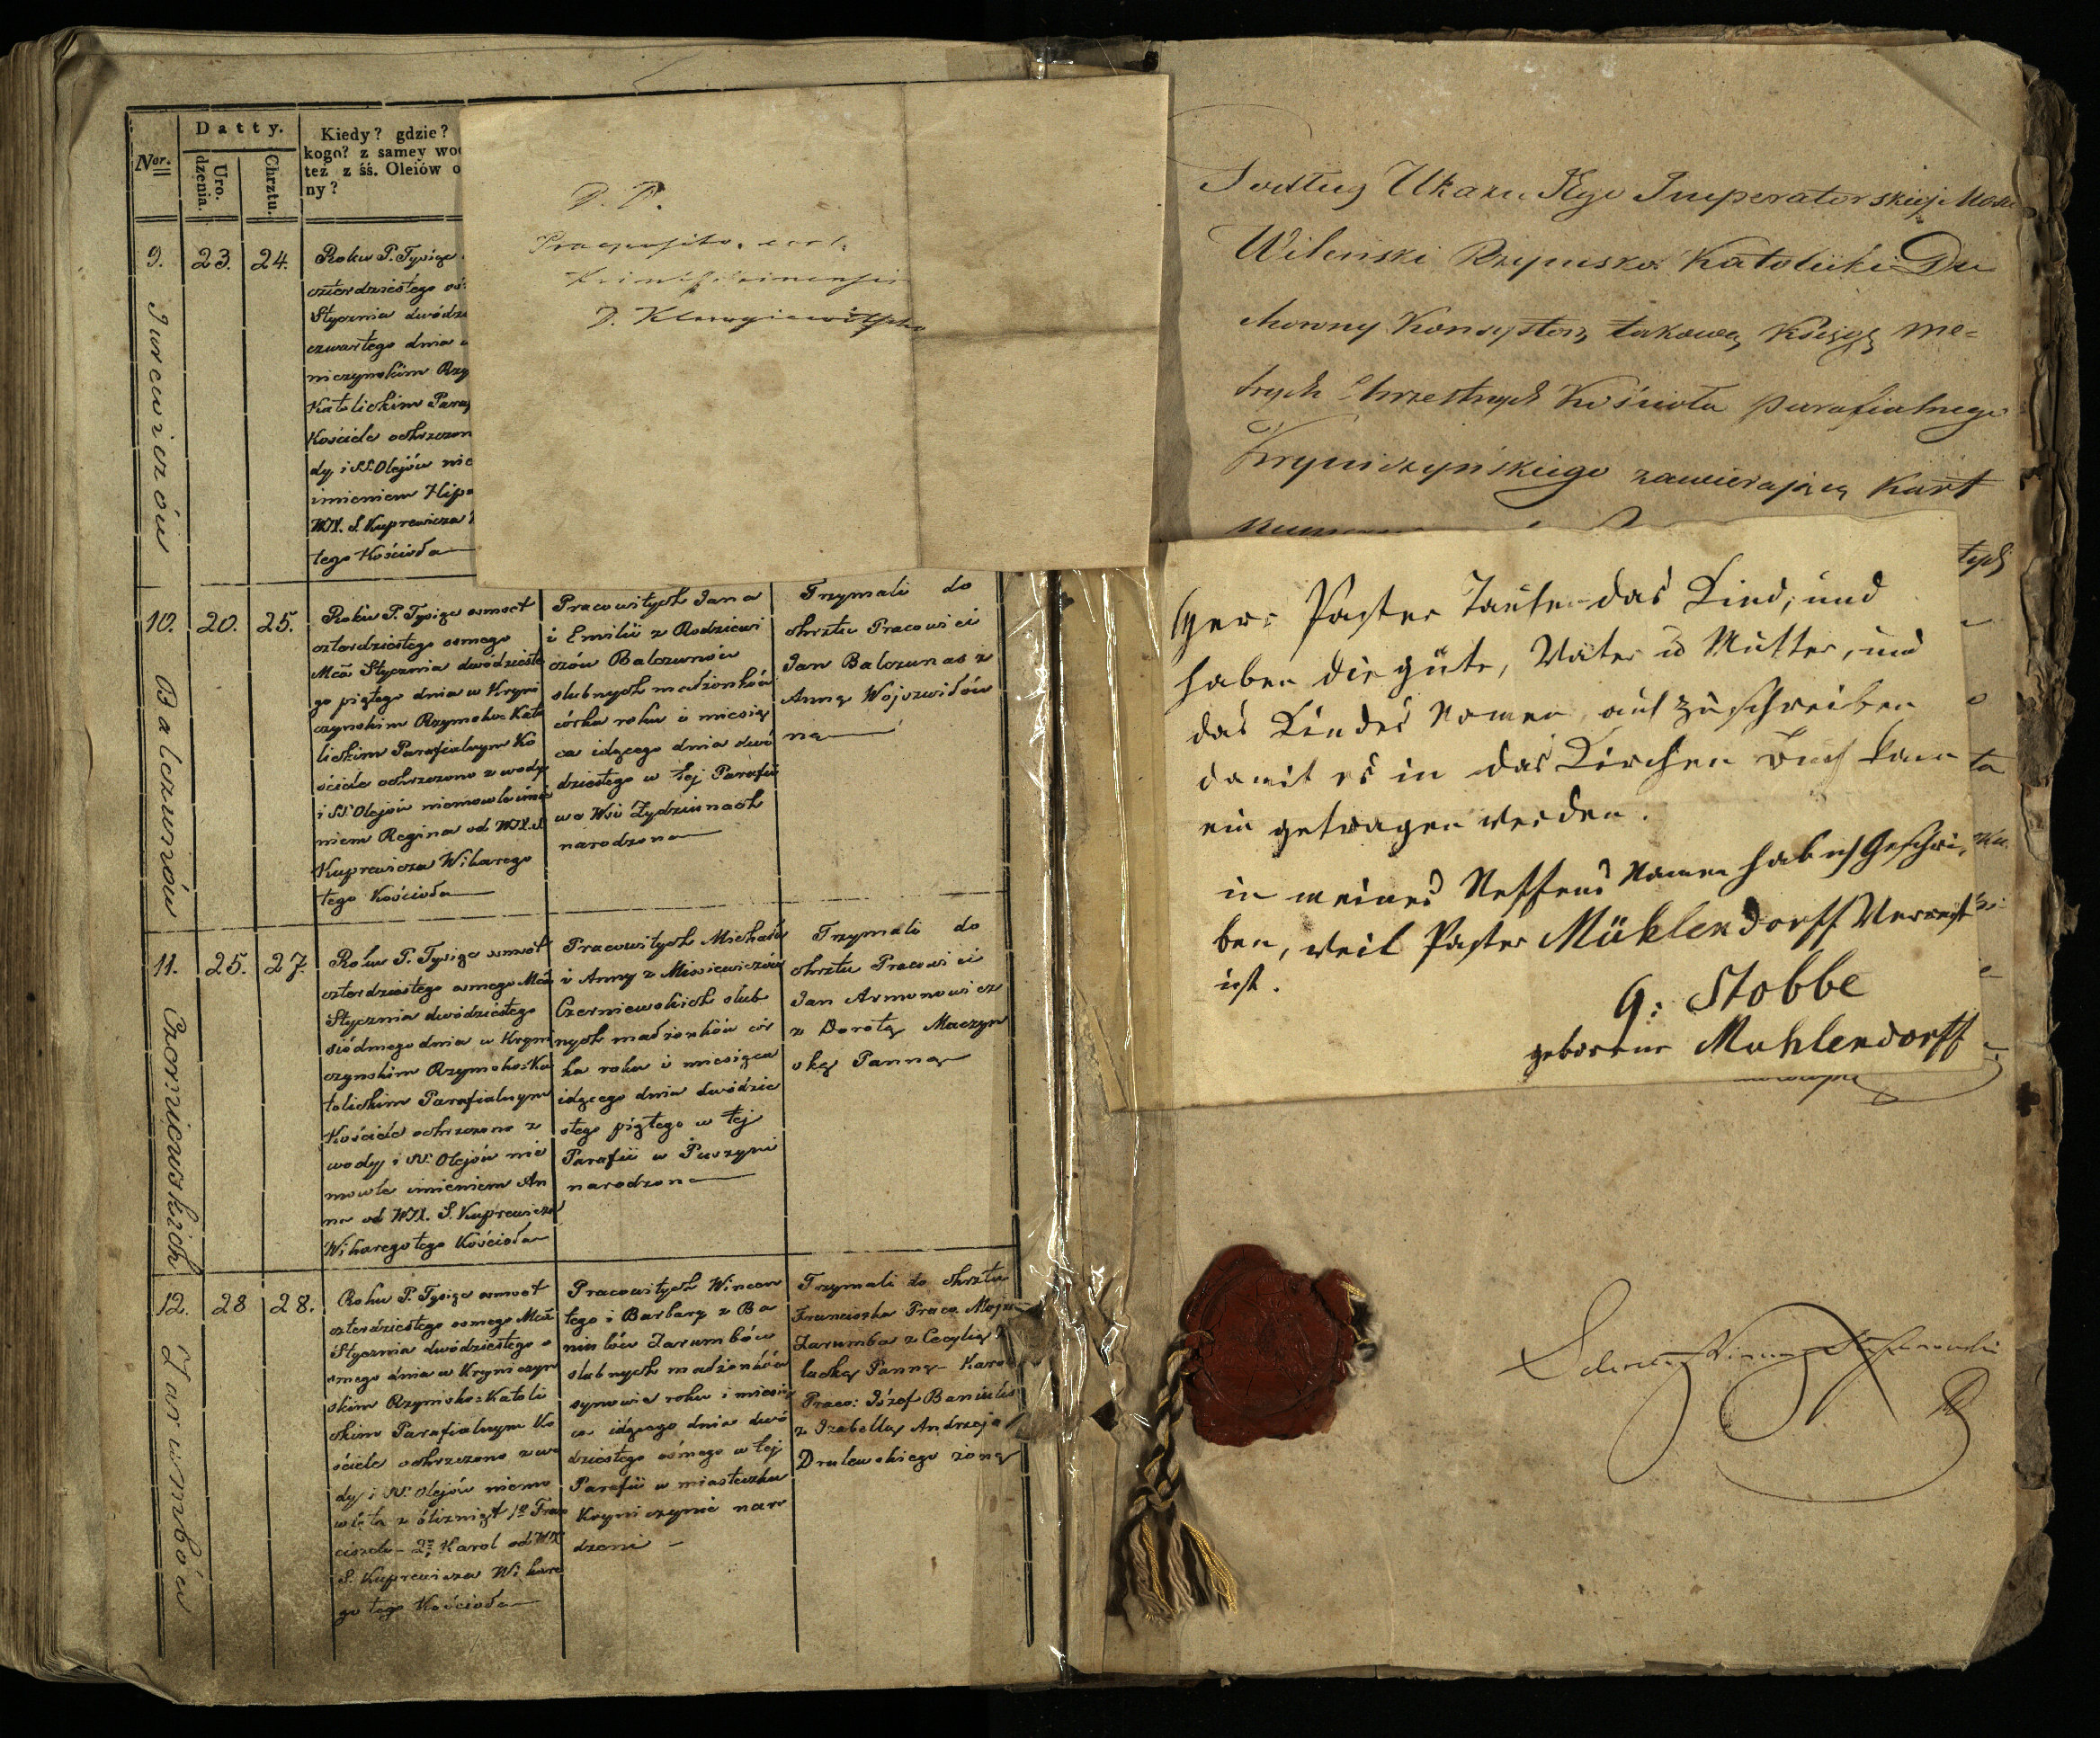 Nor.
Datty.
Uro-
dzenia.
Chrztu.
Kiedy? gdzie?
kogo? z samey wo
też z śś. Oleiów o
ny?
9.
23.
24.
Jurewiczów
Roku P. Tysiąc
czterdziestego os
Stycznia dwudzi
czwartego dnia
niczyńskim Rzy
Katolickim Paraf
Kościele ochrzczon
dy i SS. Olejów nie
imieniem Hipo
WJX. S. Kuprewicza
tego Kościoła
10.
20.
25.
Balczunów
Roku P. Tysiąc osmset
czterdziestego osmego
Mca Stycznia dwódzieste
go piątego dnia w Kryni
czynskim Rzymsko=Kato
lickim Parafialnym Ko
ściele ochrzczono z wody
i SS. Olejów niemowle imie
niem Regina od WJX. S.
Kuprewicza Wikarego
tego Kościoła
Pracowitych Jana
i Emilii z Rodziewi
czów Balczunów
slubnych małżonków
córka roku i miesią
ca idącego dnia dwó
dziestego w tej Parafii
we Wsi Żydziunach
narodzona
Trzymali do
chrztu Pracowici
Jan Balczunas z
Anną Wojszwiłów
ną
11.
25.
27.
Czerniewskich
Roku P. Tysiąc osmset
czterdziestego osmego Mca
Stycznia dwódziestego
siódmego dnia w Kryni
czynskim Rzymsko=Ka
tolickim Parafialnym
Kościele ochrzczono z
wody i SS. Olejów nie
mowle imieniem An
na od WJX. S. Kuprewicza
Wikarego tego Kościoła
Pracowitych Michała
i Anny z Misiewiczów
Czerniewskich slub
nych małżonków cór
ka roku i miesiąca
idącego dnia dwódzie
stego piątego w tej
Parafii w Puszyni
narodzona
Trzymali do
chrztu Pracowici
Jan Armonowicz
z Dorotą Maczyn
ską Panną
12.
28
28.
Zarumbów
Roku P. Tysiąc osmset
czterdziestego osmego Mca
Stycznia dwódziestego o
smego dnia w Kryniczyn
skim Rzymsko=Katoli
ckim Parafialnym Ko
ściele ochrzczono z wo
dy i SS. Olejów niemo
wlęta z bliźniąt 1º Fran
ciszek - 2º Karol od WJX
S. Kuprewicza Wikare
go tego Kościoła
Pracowitych Wincen
tego i Barbary z Ba
niulów Zarumbów
slubnych małżonków
synowie roku i miesią
ca idącego dnia dwó
dziestego ósmego w tej
Parafii w miasteczku
Kryniczynie naro
dzeni
Trzymali do chrztu
Franciszka Praco.
Zarumba z Cecylią
lacką Panną - Karol
Praco: Józef Baniulis
z Izabellą Andrzeja
Drulewskiego żoną
D. D.
Praeposito
D.
Podług Ukazu Jego Imperatorskiej Mości
Wileński Rzymsko Katolicki Du
chowny Konsystorz takową Księgę me=
trych Chrzestnych Kościoła parafialnego
Kryniczyńskiego zawierającą kart
Herr Pastor Taufen das Kind, und
haben die güte, Vater u Mutter, und
das Kindes Namen auf zu schreiben
damit es in das Kirchen buch kann
ein getragen werden.
in meines Neffens Namen hab ich Geschrie
ben, weil Pastor Mühlendorff Verreist
ist.
G: Stobbe
geborene Muhlendorff